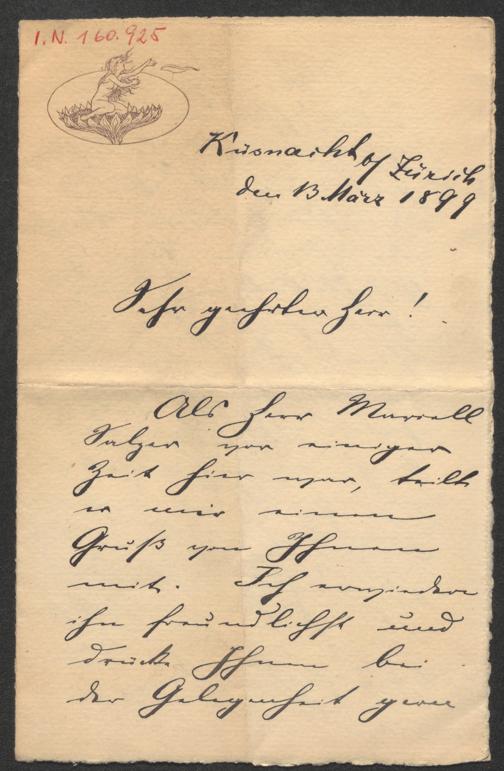 I.N. 160.925
Küsnacht b/ Zürich
den 13 März 1899
Sehr geehrter Herr!
Als Herr Marcell
Salzer vor einiger
Zeit hier war, teilte
er mir einen
Gruß von Ihnen
mit. Ich erwiedere
ihn freundlichst und
drücke Ihnen bei
der Gelegenheit gern